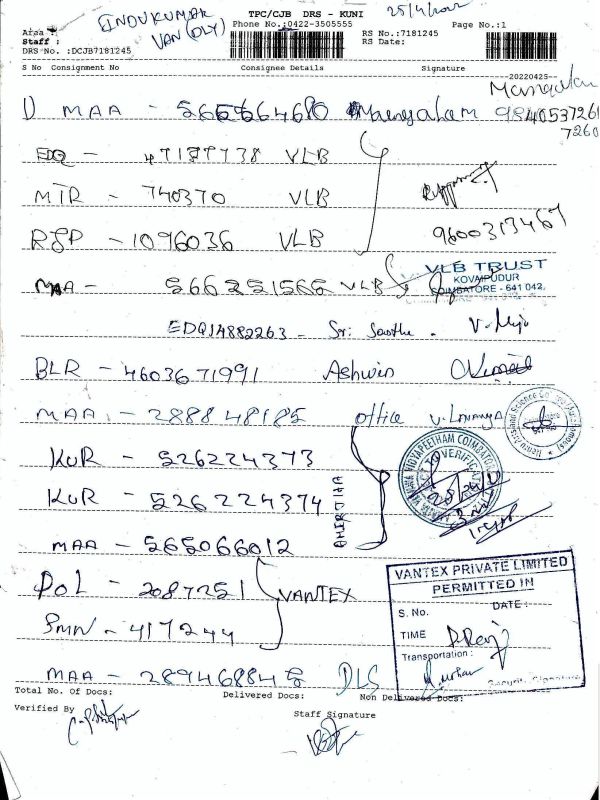 TPC/CJB DRS - KUNI
25/4/2022
INDUKUMAR
VAN (DLY)
Phone No.:0422-3505555
Page No.:1
Area :
Staff :
DRS No. :DCJB7181245
RS No.:7181245
RS Date:
S No Consignment No Consignee Details Signature
20220425
1) MAA - 566564680 9840537261
7260
EDQ - 47137738 VLB
MTR - 740370 VLB
RJP - 1096036 VLB 9600313467
MAA - 566251566 VLB
VLB TRUST
KOVAIPUDUR
COIMBATORE - 641 042.
EDQ14882263 - Sri
BLR - 4603671991 Ashwin
MAA - 288848185 office V. Lavanya
KUR - 526224373
KUR - 526224374
AMIRTHA
MAA - 565066012
VIDYAPEETHAM COIMBATORE
POL - 2087251 VANTEX
SMN - 417244
VANTEX PRIVATE LIMITED
PERMITTED IN
S. No. DATE :
TIME
Transportation :
Security Signature
MAA - 289468848 DLS
Total No. of Docs: Delivered Docs: Non Delivered Docs:
Verified By Staff Signature